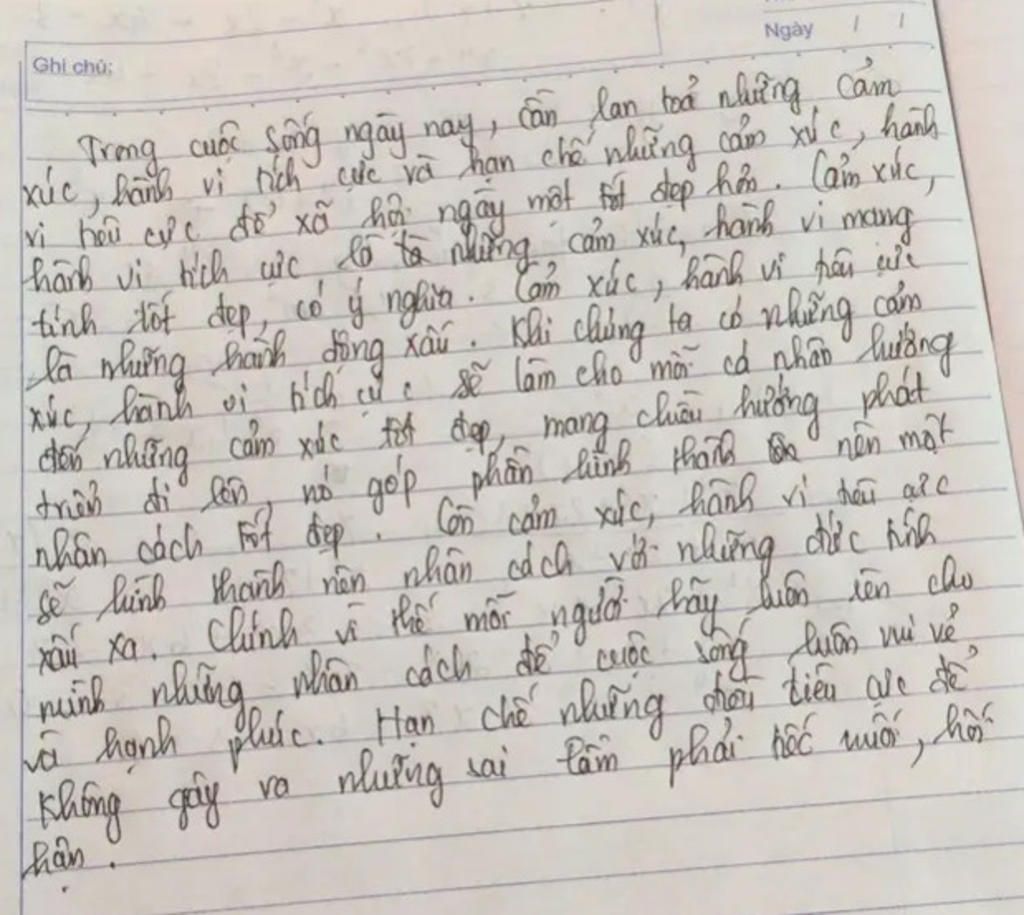 Ngày / /
Ghi chú:
Trong cuộc sống ngày nay, cần lan toả những cảm
xúc, hành vi tích cực và hạn chế những cảm xúc, hành
vi tiêu cực để xã hội ngày một tốt đẹp hơn. Cảm xúc,
hành vi tích cực là những cảm xúc, hành vi mang
tính tốt đẹp, có ý nghĩa. Cảm xúc, hành vi tiêu cực
là những hành động xấu. Khi chúng ta có những cảm
xúc, hành vi tích cực sẽ làm cho mỗi cá nhân hướng
đến những cảm xúc tốt đẹp, mang chiều hướng phát
triển đi lên, nó góp phần hình thành nên một
nhân cách tốt đẹp. Còn cảm xúc, hành vi tiêu cực
sẽ hình thành nên nhân cách với những đức tính
xấu xa. Chính vì thế mỗi người hãy luôn rèn cho
mình những nhân cách để cuộc sống luôn vui vẻ
và hạnh phúc. Hạn chế những điều tiêu cực để
không gây ra những sai lầm phải tiếc nuối, hối
hận.